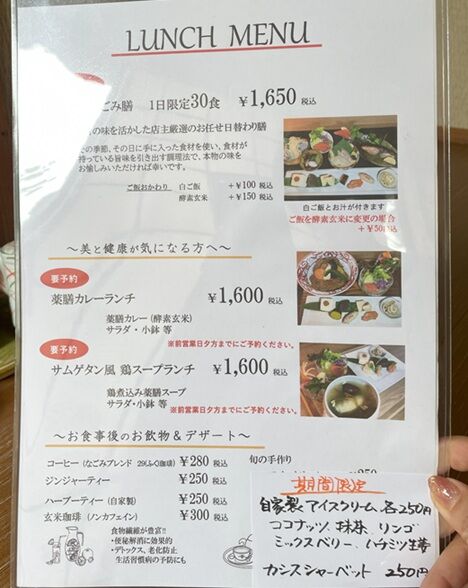 LUNCH MENU
ごみ膳 1日限定30食 ¥1,650 税込
の味を活かした店主厳選のお任せ日替わり膳
その季節、その日に手に入った食材を使い、食材が
持っている旨味を引き出す調理法で、本物の味を
お愉しみいただければ幸いです。
ご飯おかわり 白ご飯 +¥100 税込
酵素玄米 +¥150 税込
白ご飯とお汁が付きます
ご飯を酵素玄米に変更の場合
+¥50税込
~美と健康が気になる方へ~
要予約
薬膳カレーランチ ¥1,600 税込
薬膳カレー(酵素玄米)
サラダ・小鉢 等
※前営業日夕方までにご予約ください。
要予約
サムゲタン風 鶏スープランチ ¥1,600 税込
鶏煮込み薬膳スープ
サラダ・小鉢 等
※前営業日夕方までにご予約ください。
~お食事後のお飲物&デザート~
コーヒー(なごみブレンド 29(ふく)珈琲) ¥280 税込
ジンジャーティー ¥250 税込
ハーブティー(自家製) ¥250 税込
玄米珈琲(ノンカフェイン) ¥300 税込
食物繊維が豊富!!
・便秘解消に効果的
・デトックス、老化防止
生活習慣病の予防にも
旬の手作り
期間限定
自家製アイスクリーム 各250円
ココナッツ 抹茶 リンゴ
ミックスベリー ハチミツ生姜
カシスシャーベット 250円